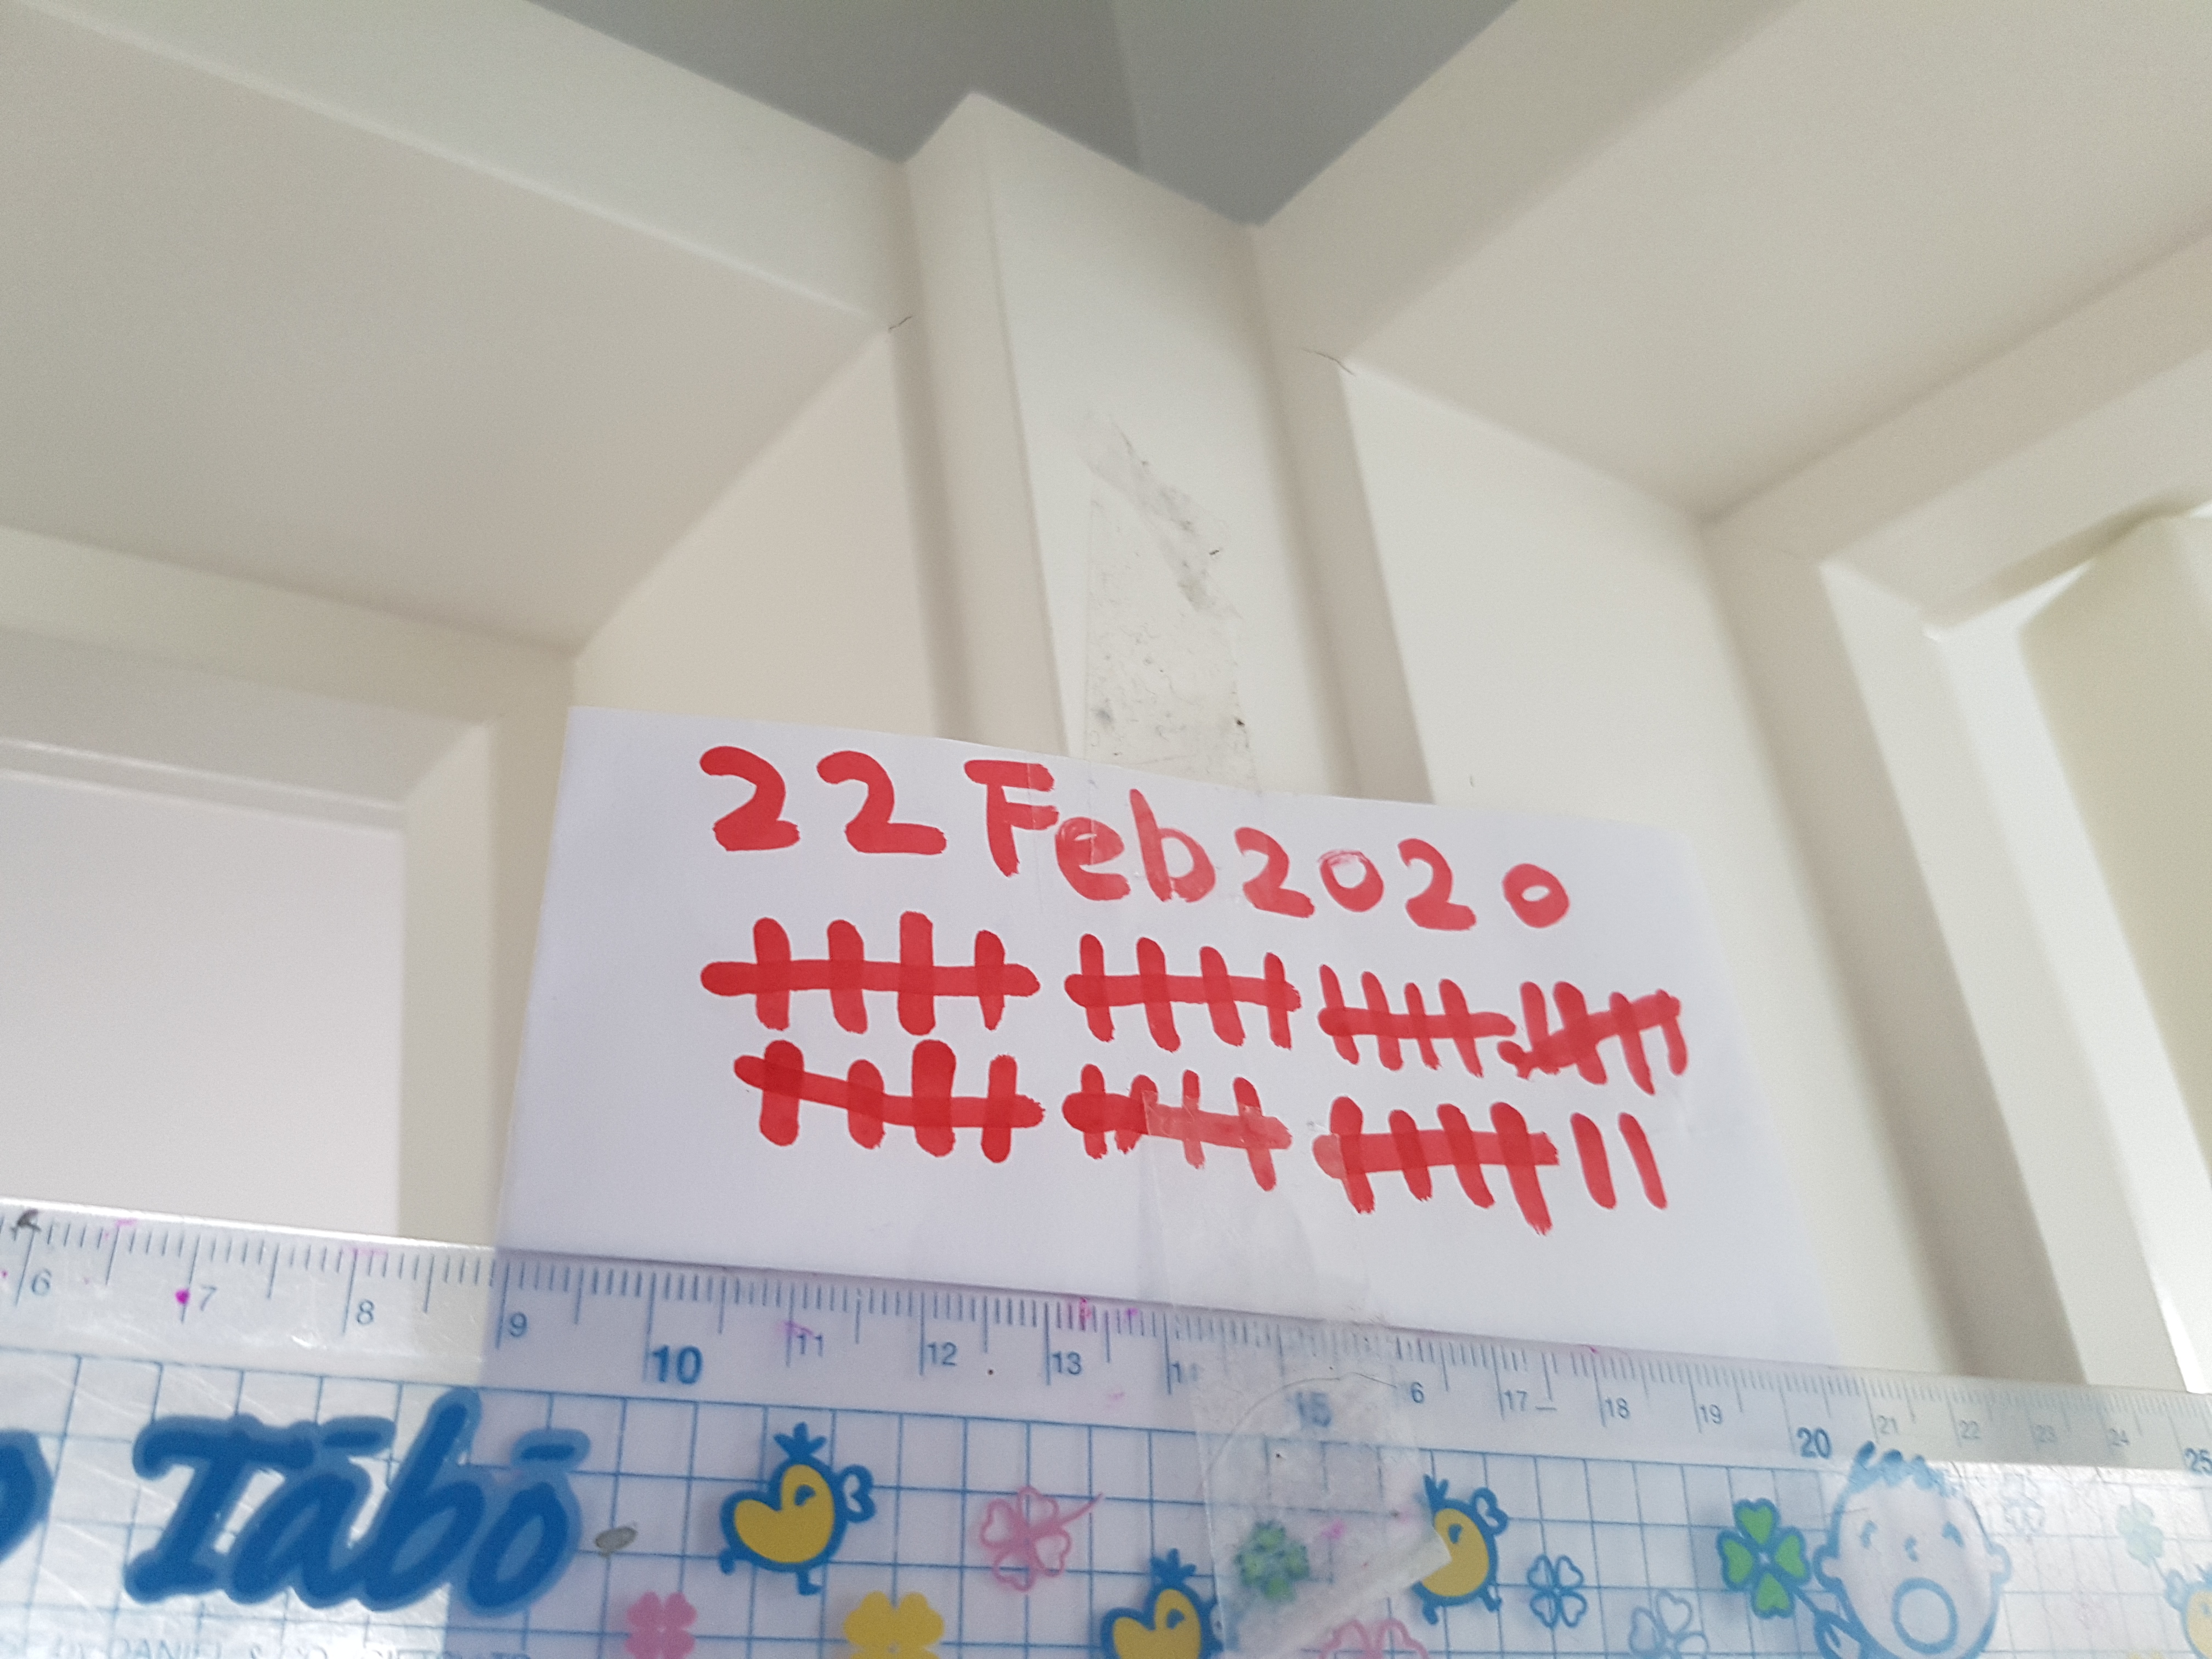 22 Feb 2020
6 7 8 9 10 11 12 13 15 17 18 19 20 21 22 23 24 25
Tábō